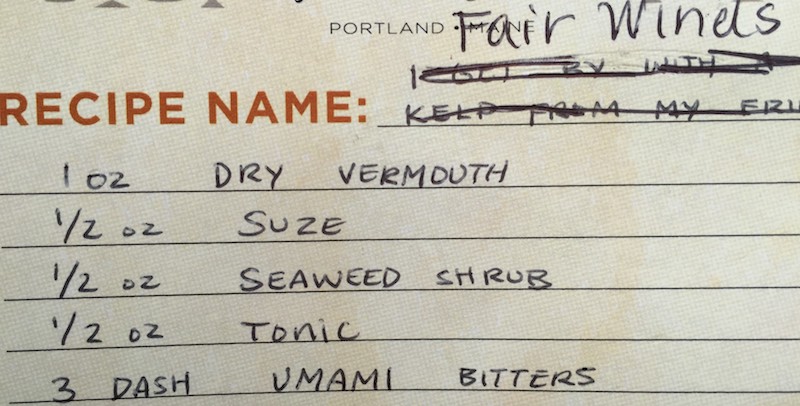 PORTLAND • MAINE
Fair Winds
I GET BY WITH A
RECIPE NAME: KELP FROM MY FRI
1 oz DRY VERMOUTH
1/2 oz SUZE
1/2 oz SEAWEED SHRUB
1/2 oz TONIC
3 DASH UMAMI BITTERS